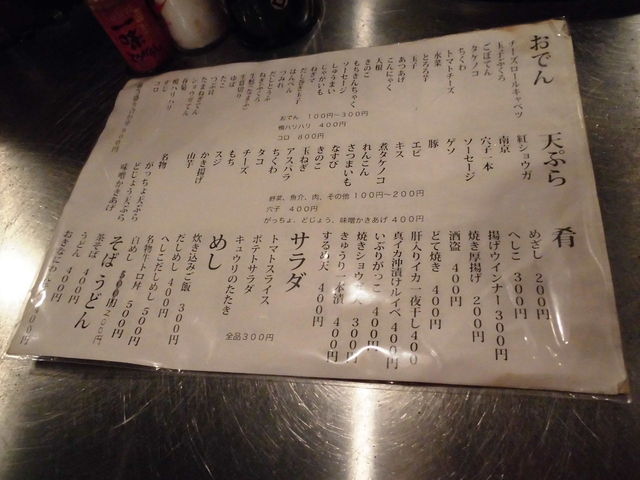 おでん
チーズロールキャベツ
玉子ぶくろ
ごぼてん
タケノコ
ちくわ
トマトチーズ
水菜
とろろ芋
玉子
あつあげ
こんにゃく
大根
きのこ
もちきんちゃく
ソーセージ
しゅうまい
じゃがいも
ねぎマ
はんぺん
つみれ
おでん 100円~300円
鴨ハリハリ 400円
コロ 800円
天ぷら
紅ショウガ
南京
穴子一本
ソーセージ
ゲソ
豚
エビ
キス
煮タケノコ
れんこん
さつまいも
なすび
きのこ
玉ねぎ
アスパラ
ちくわ
タコ
チーズ
もち
スジ
かき揚げ
山芋
名物
がっちょ天ぷら
どじょう天ぷら
味噌かきあげ
野菜、魚介、肉、その他 100円~200円
穴子 400円
がっちょ、どじょう、味噌かきあげ 400円
肴
めざし 200円
へしこ 300円
揚げウインナー 300円
焼き厚揚げ 200円
酒盗 400円
どて焼き 400円
肝入りイカ一夜干し 400
真イカ沖漬けルイベ 400円
いぶりがっこ 400円
300円
きゅうり一本漬 400円
するめ天 400円
サラダ
トマトスライス
ポテトサラダ
キュウリのたたき
全品300円
めし
炊き込みご飯 300円
だしめし 400円
へしこだしめし 500円
名物牛トロ丼 500円
白めし 200円
そばうどん
茶そば 500円
うどん 400円